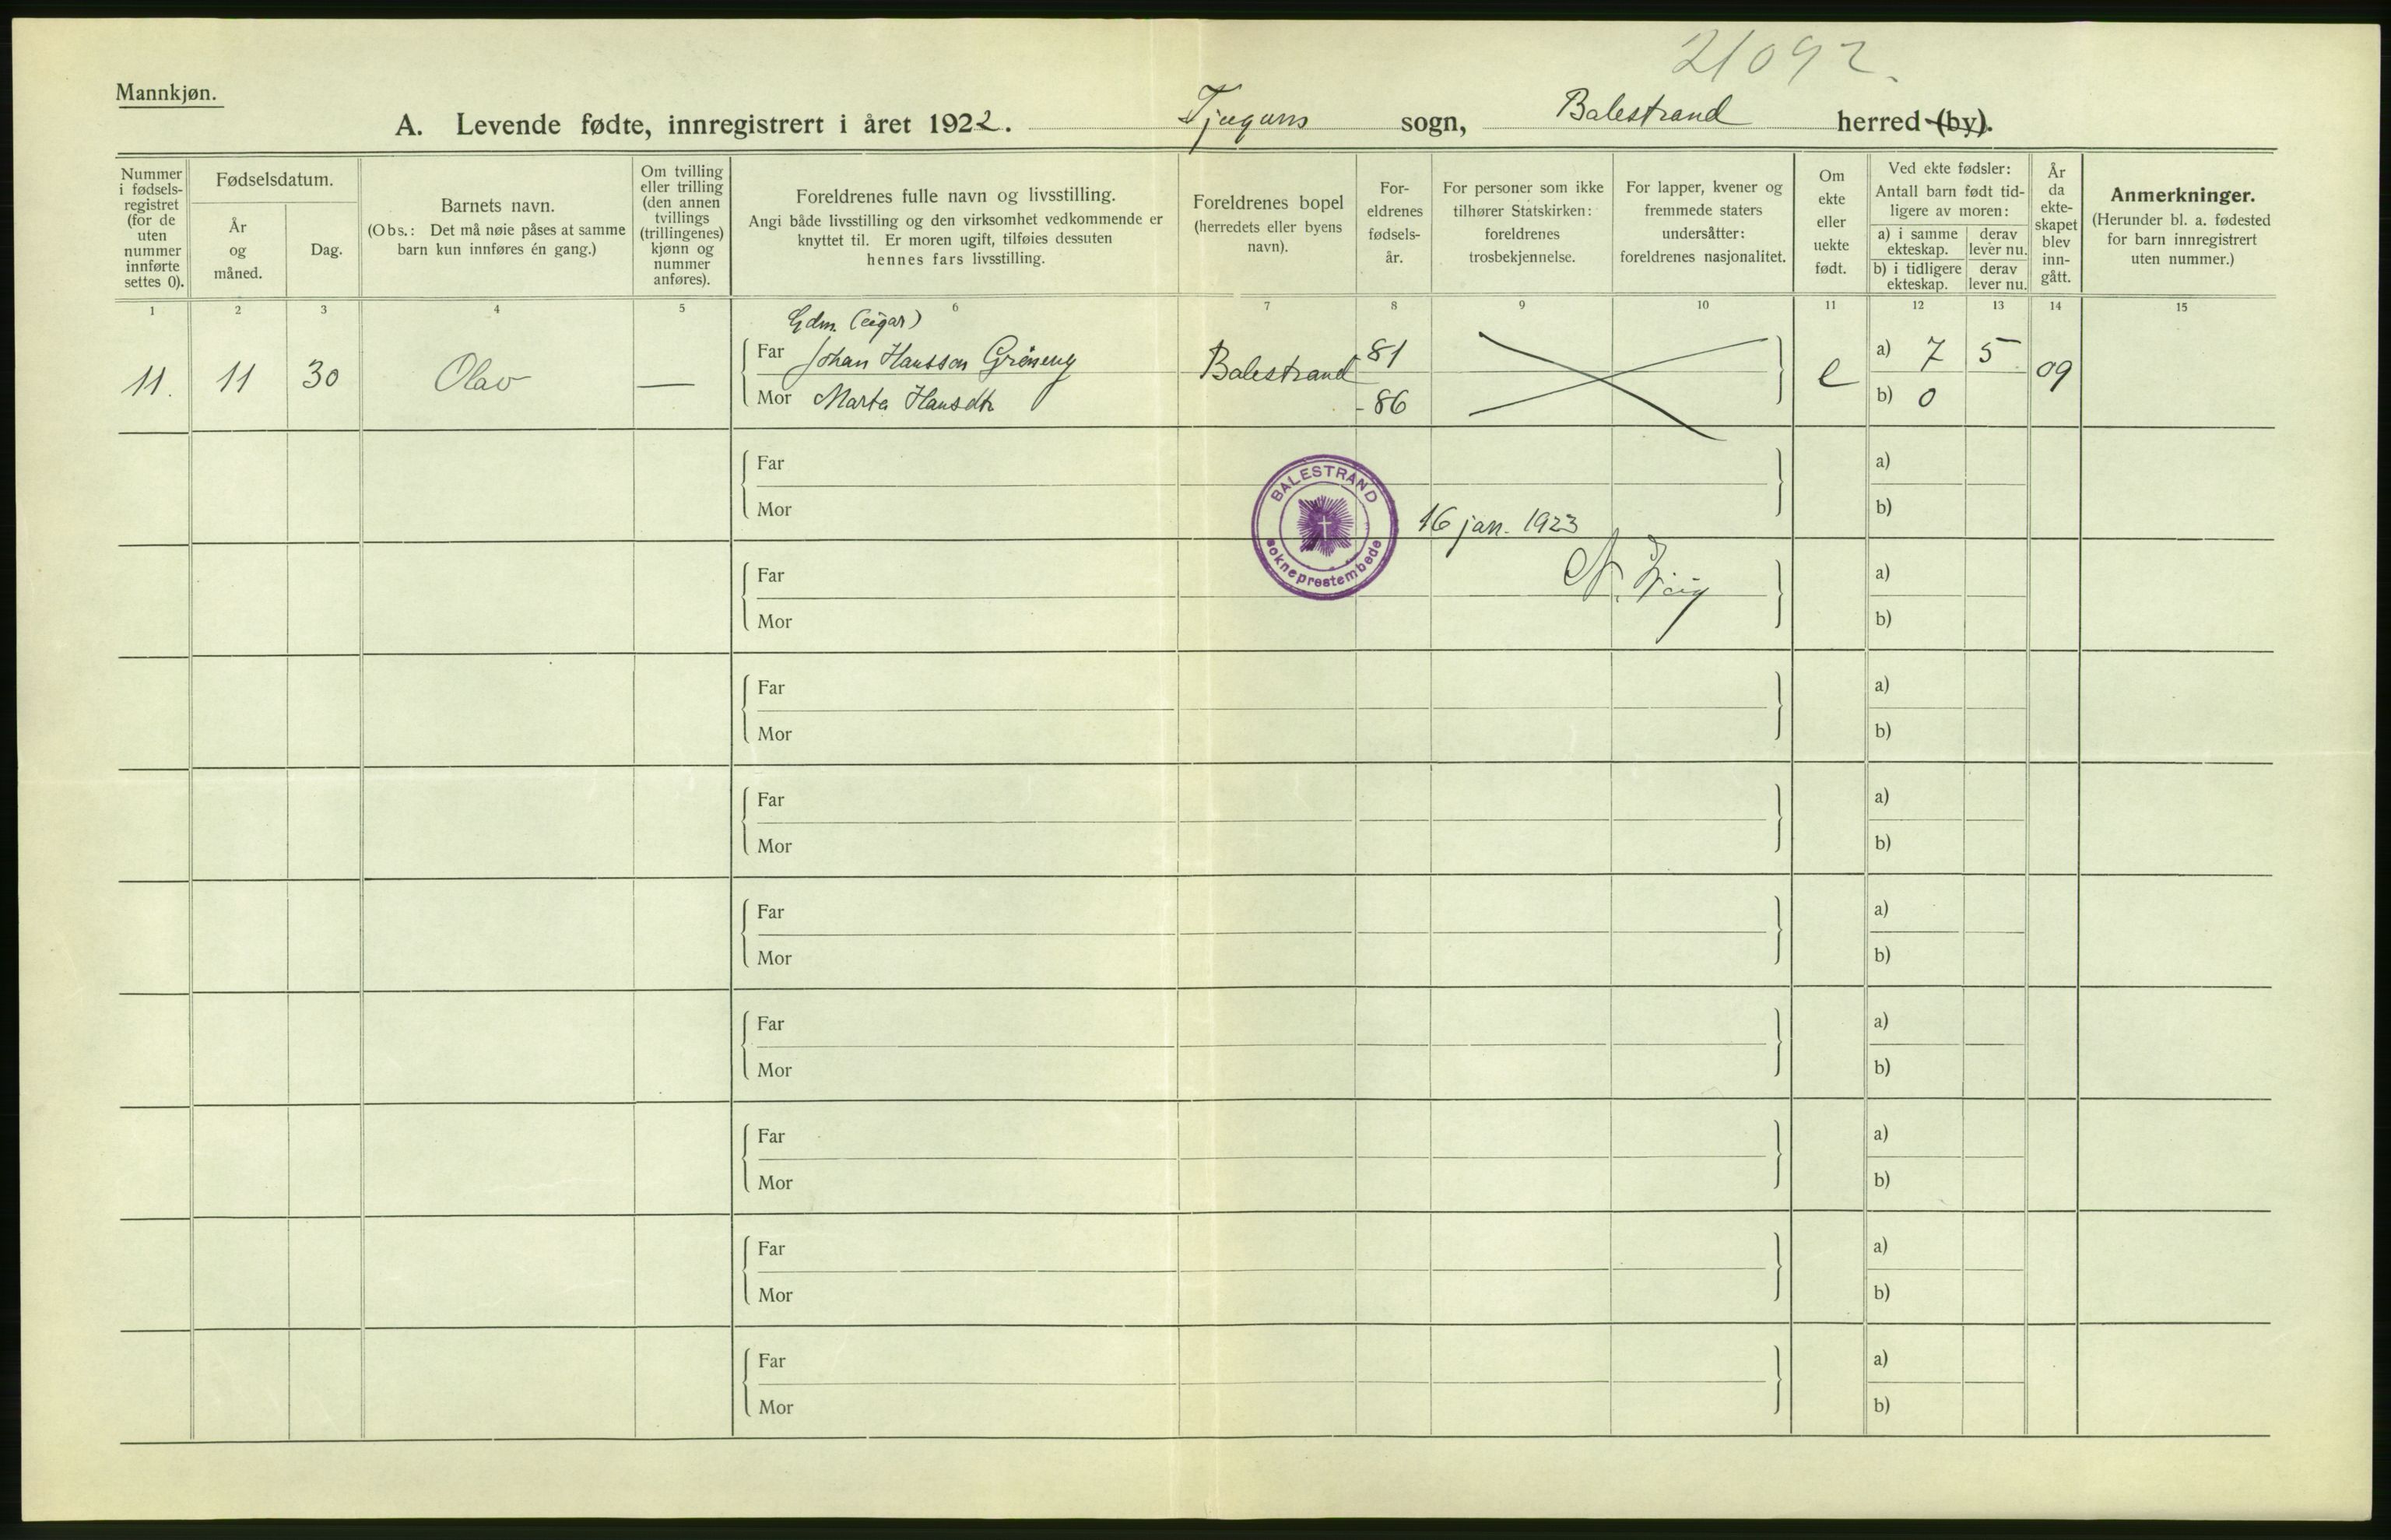 21092.
Mannkjøn.
A. Levende fødte, innregistrert i året 1922. Tjugums sogn, Balestrand herred (by).
Nummer i fødsels-registret (for de uten nummer innførte settes 0).
Fødselsdatum.
År og måned.
Dag.
Barnets navn.
(Obs.: Det må nøie påses at samme barn kun innføres én gang.)
Om tvilling eller trilling (den annen tvillings (trillingenes) kjønn og nummer anføres).
Foreldrenes fulle navn og livsstilling.
Angi både livsstilling og den virksomhet vedkommende er knyttet til. Er moren ugift, tilføies dessuten hennes fars livsstilling.
Foreldrenes bopel
(herredets eller byens navn).
For-eldrenes fødsels-år.
For personer som ikke tilhører Statskirken: foreldrenes trosbekjennelse.
For lapper, kvener og fremmede staters undersåtter: foreldrenes nasjonalitet.
Om ekte eller uekte født.
Ved ekte fødsler:
Antall barn født tid-ligere av moren:
a) i samme ekteskap.
derav lever nu.
b) i tidligere ekteskap.
derav lever nu.
År da ekte-skapet blev inn-gått.
Anmerkninger.
(Herunder bl. a. fødested for barn innregistrert uten nummer.)
1 2 3 4 5 6 7 8 9 10 11 12 13 14 15
Gdm. (eigar)
11. 11 30 Olav — Far Johan Hansson Grøneng Balestrand 81 e a) 7 5 09
Mor Marta Hansdtr - 86 b) 0
Far a)
Mor b)
BALESTRAND
sokneprestembede
16 jan. 1923
Far a)
Mor b)
Far a)
Mor b)
Far a)
Mor b)
Far a)
Mor b)
Far a)
Mor b)
Far a)
Mor b)
Far a)
Mor b)
Far a)
Mor b)